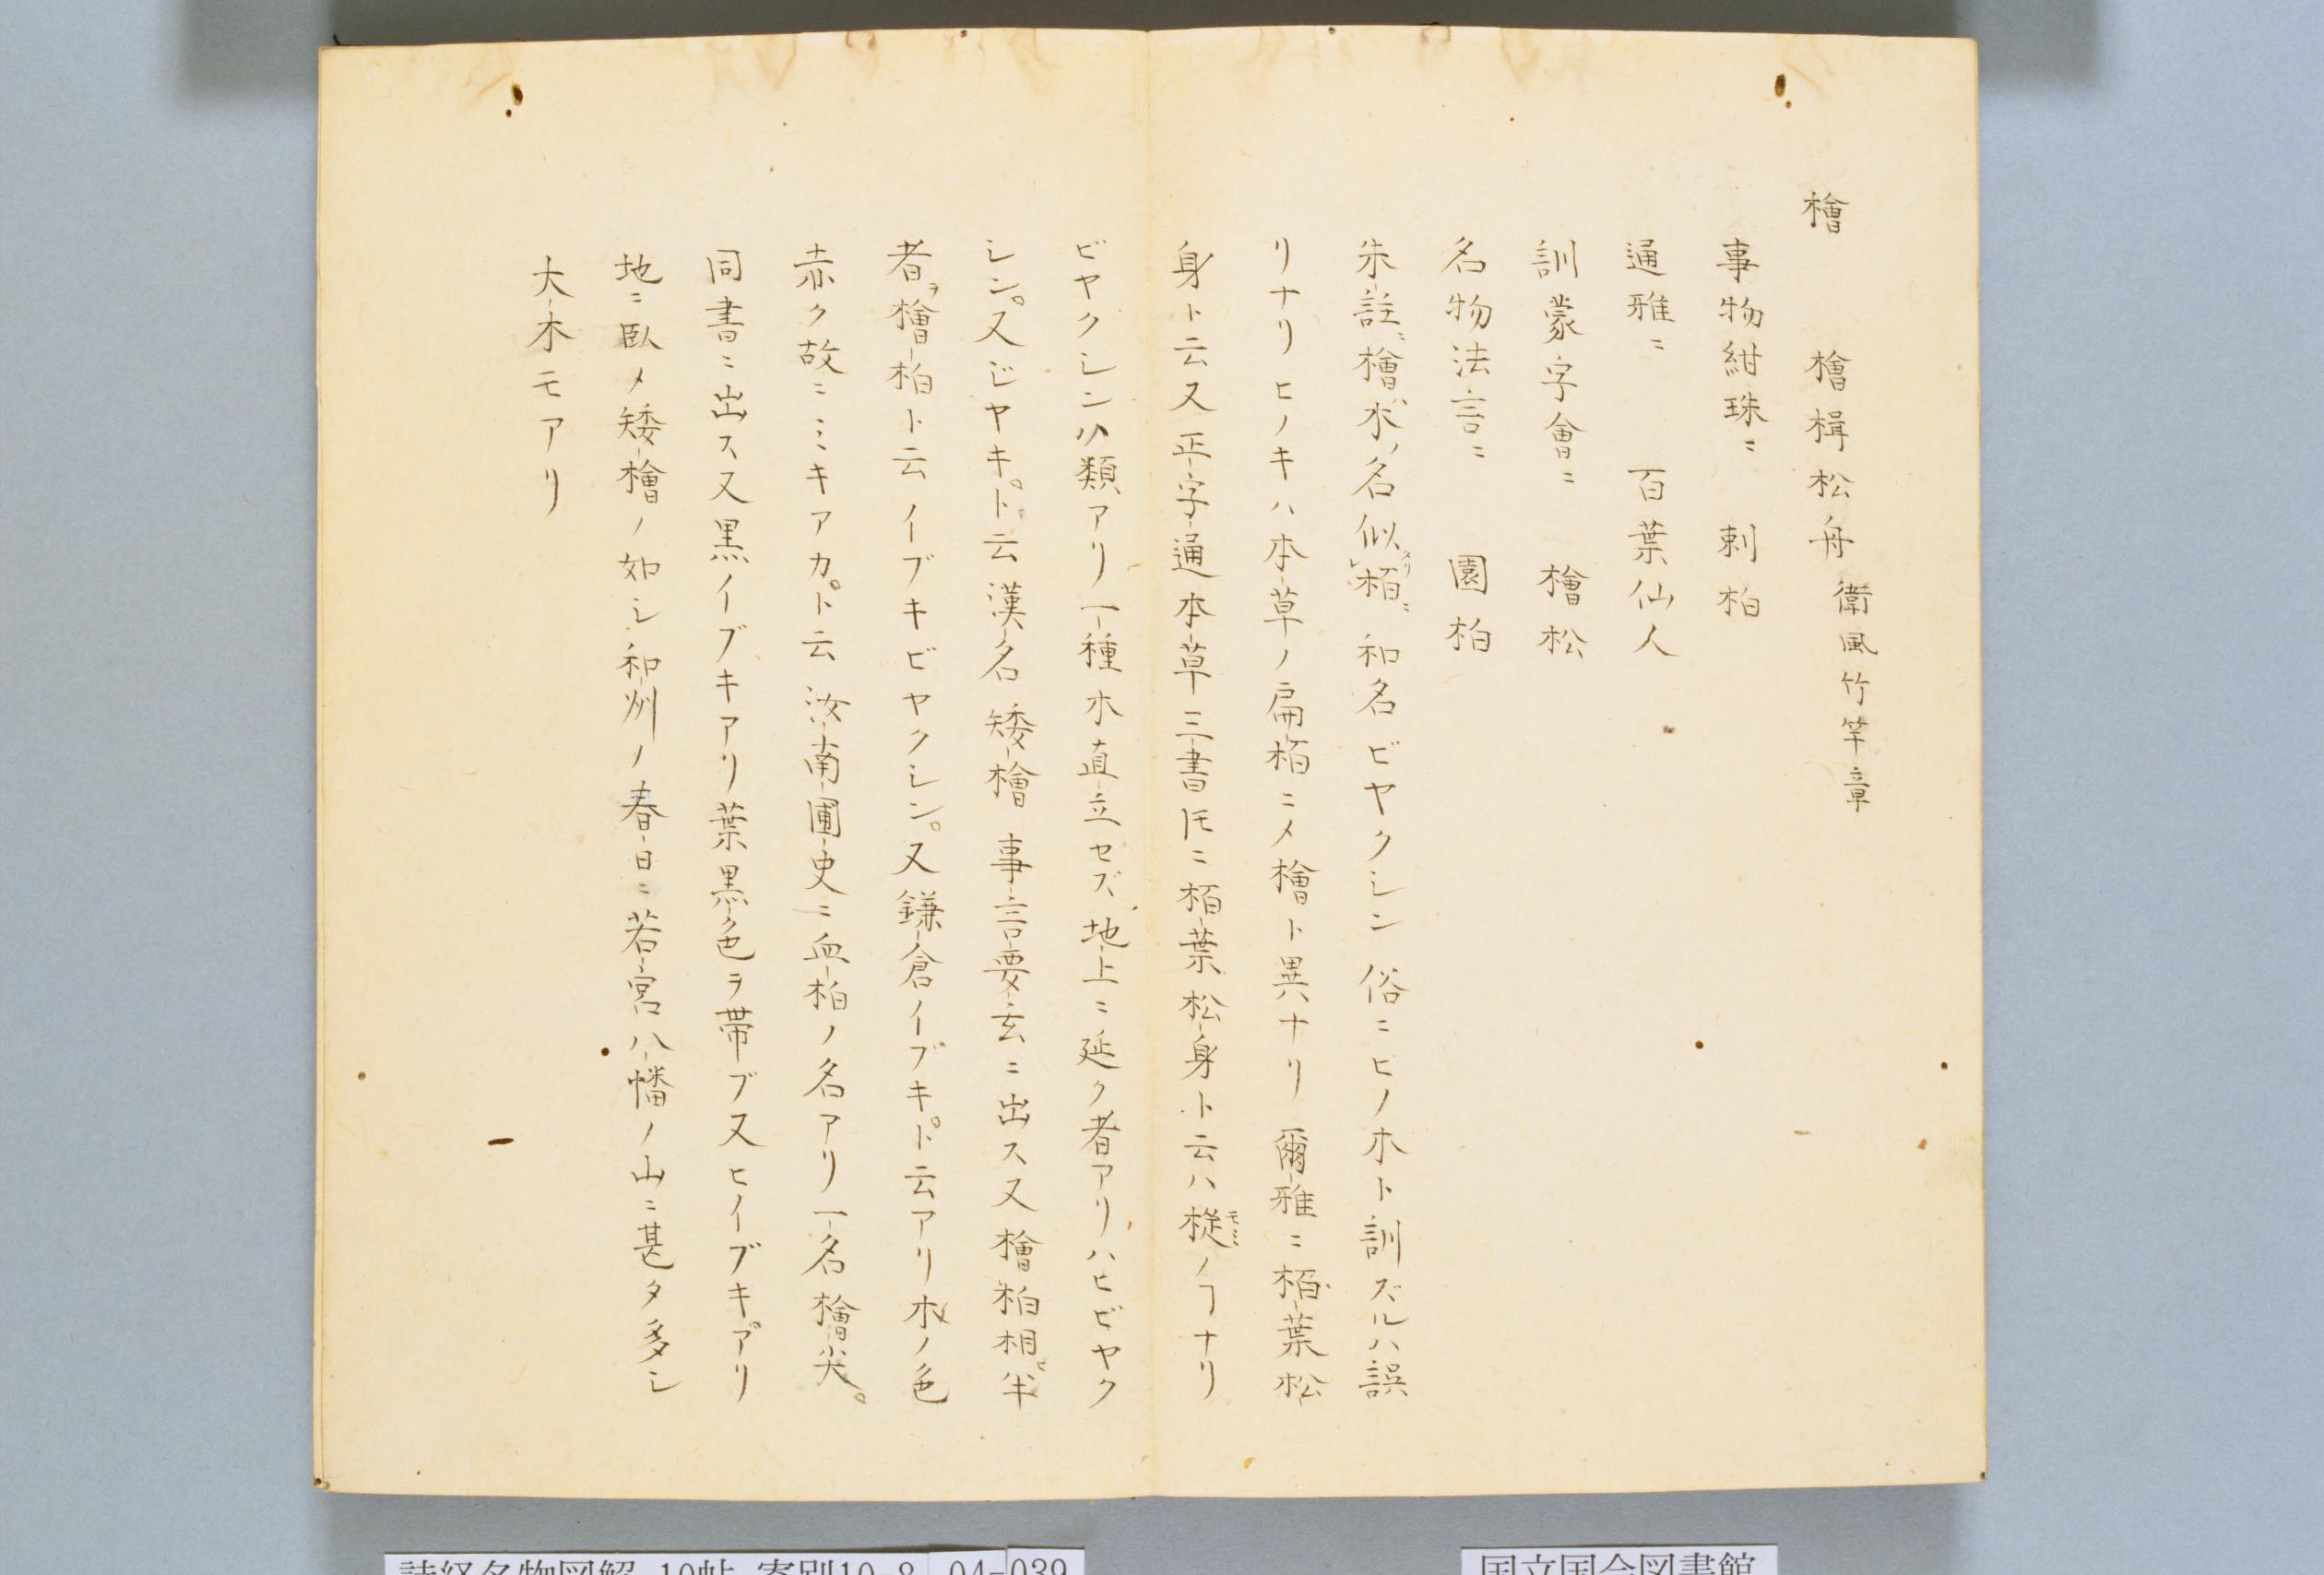 檜　檜楫松舟 衛風竹竿章
事物紺珠ニ　刺柏
通雅ニ　百葉仙人
訓蒙字會ニ　檜松
名物法言ニ　園柏
朱註ニ檜ハ木ノ名似栢ニ 和名ビヤクシン 俗ニヒノ木ト訓ズルハ誤
リナリヒノキハ本草ノ扁栢ニ乄檜ト異ナリ 爾雅ニ栢葉松
身ト云又正字通本草三書ㇳモニ栢葉松身ト云ハ樅モミノヿナリ
ビヤクシン八類アリ一種木直立セズ地上ニ延ク者アリハヒビヤク
シン。又ジヤキ。ト云漢名矮檜 事言要玄ニ出ス又檜柏相半
者ヲ檜柏ト云イブキビヤクシン。又鎌倉イブキ。ト云アリ木ノ色
赤ク故ニミキアカ。ト云 汝南圃史ニ血柏ノ名アリ一名檜尖。
同書ニ出ス又黒イブキアリ葉黒色ヲ帯ブ又ヒイブキ。アリ
地ニ臥乄矮檜ノ如シ和州ノ春日ニ若宮八幡ノ山ニ甚タ多シ
大木モアリ
詩経名物図解 10帖 寄別10-8 04-039
国立国会図書館